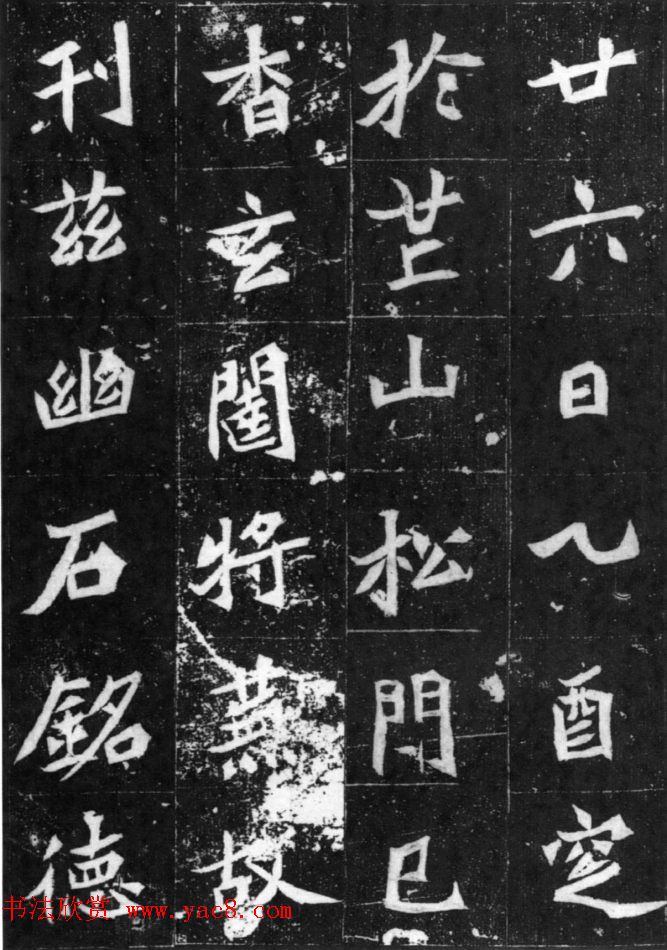 廿六日乙酉窆
於芒山松門已
杳玄閨將蕪故
刊茲幽石銘德
书法欣赏 www.yac8.com